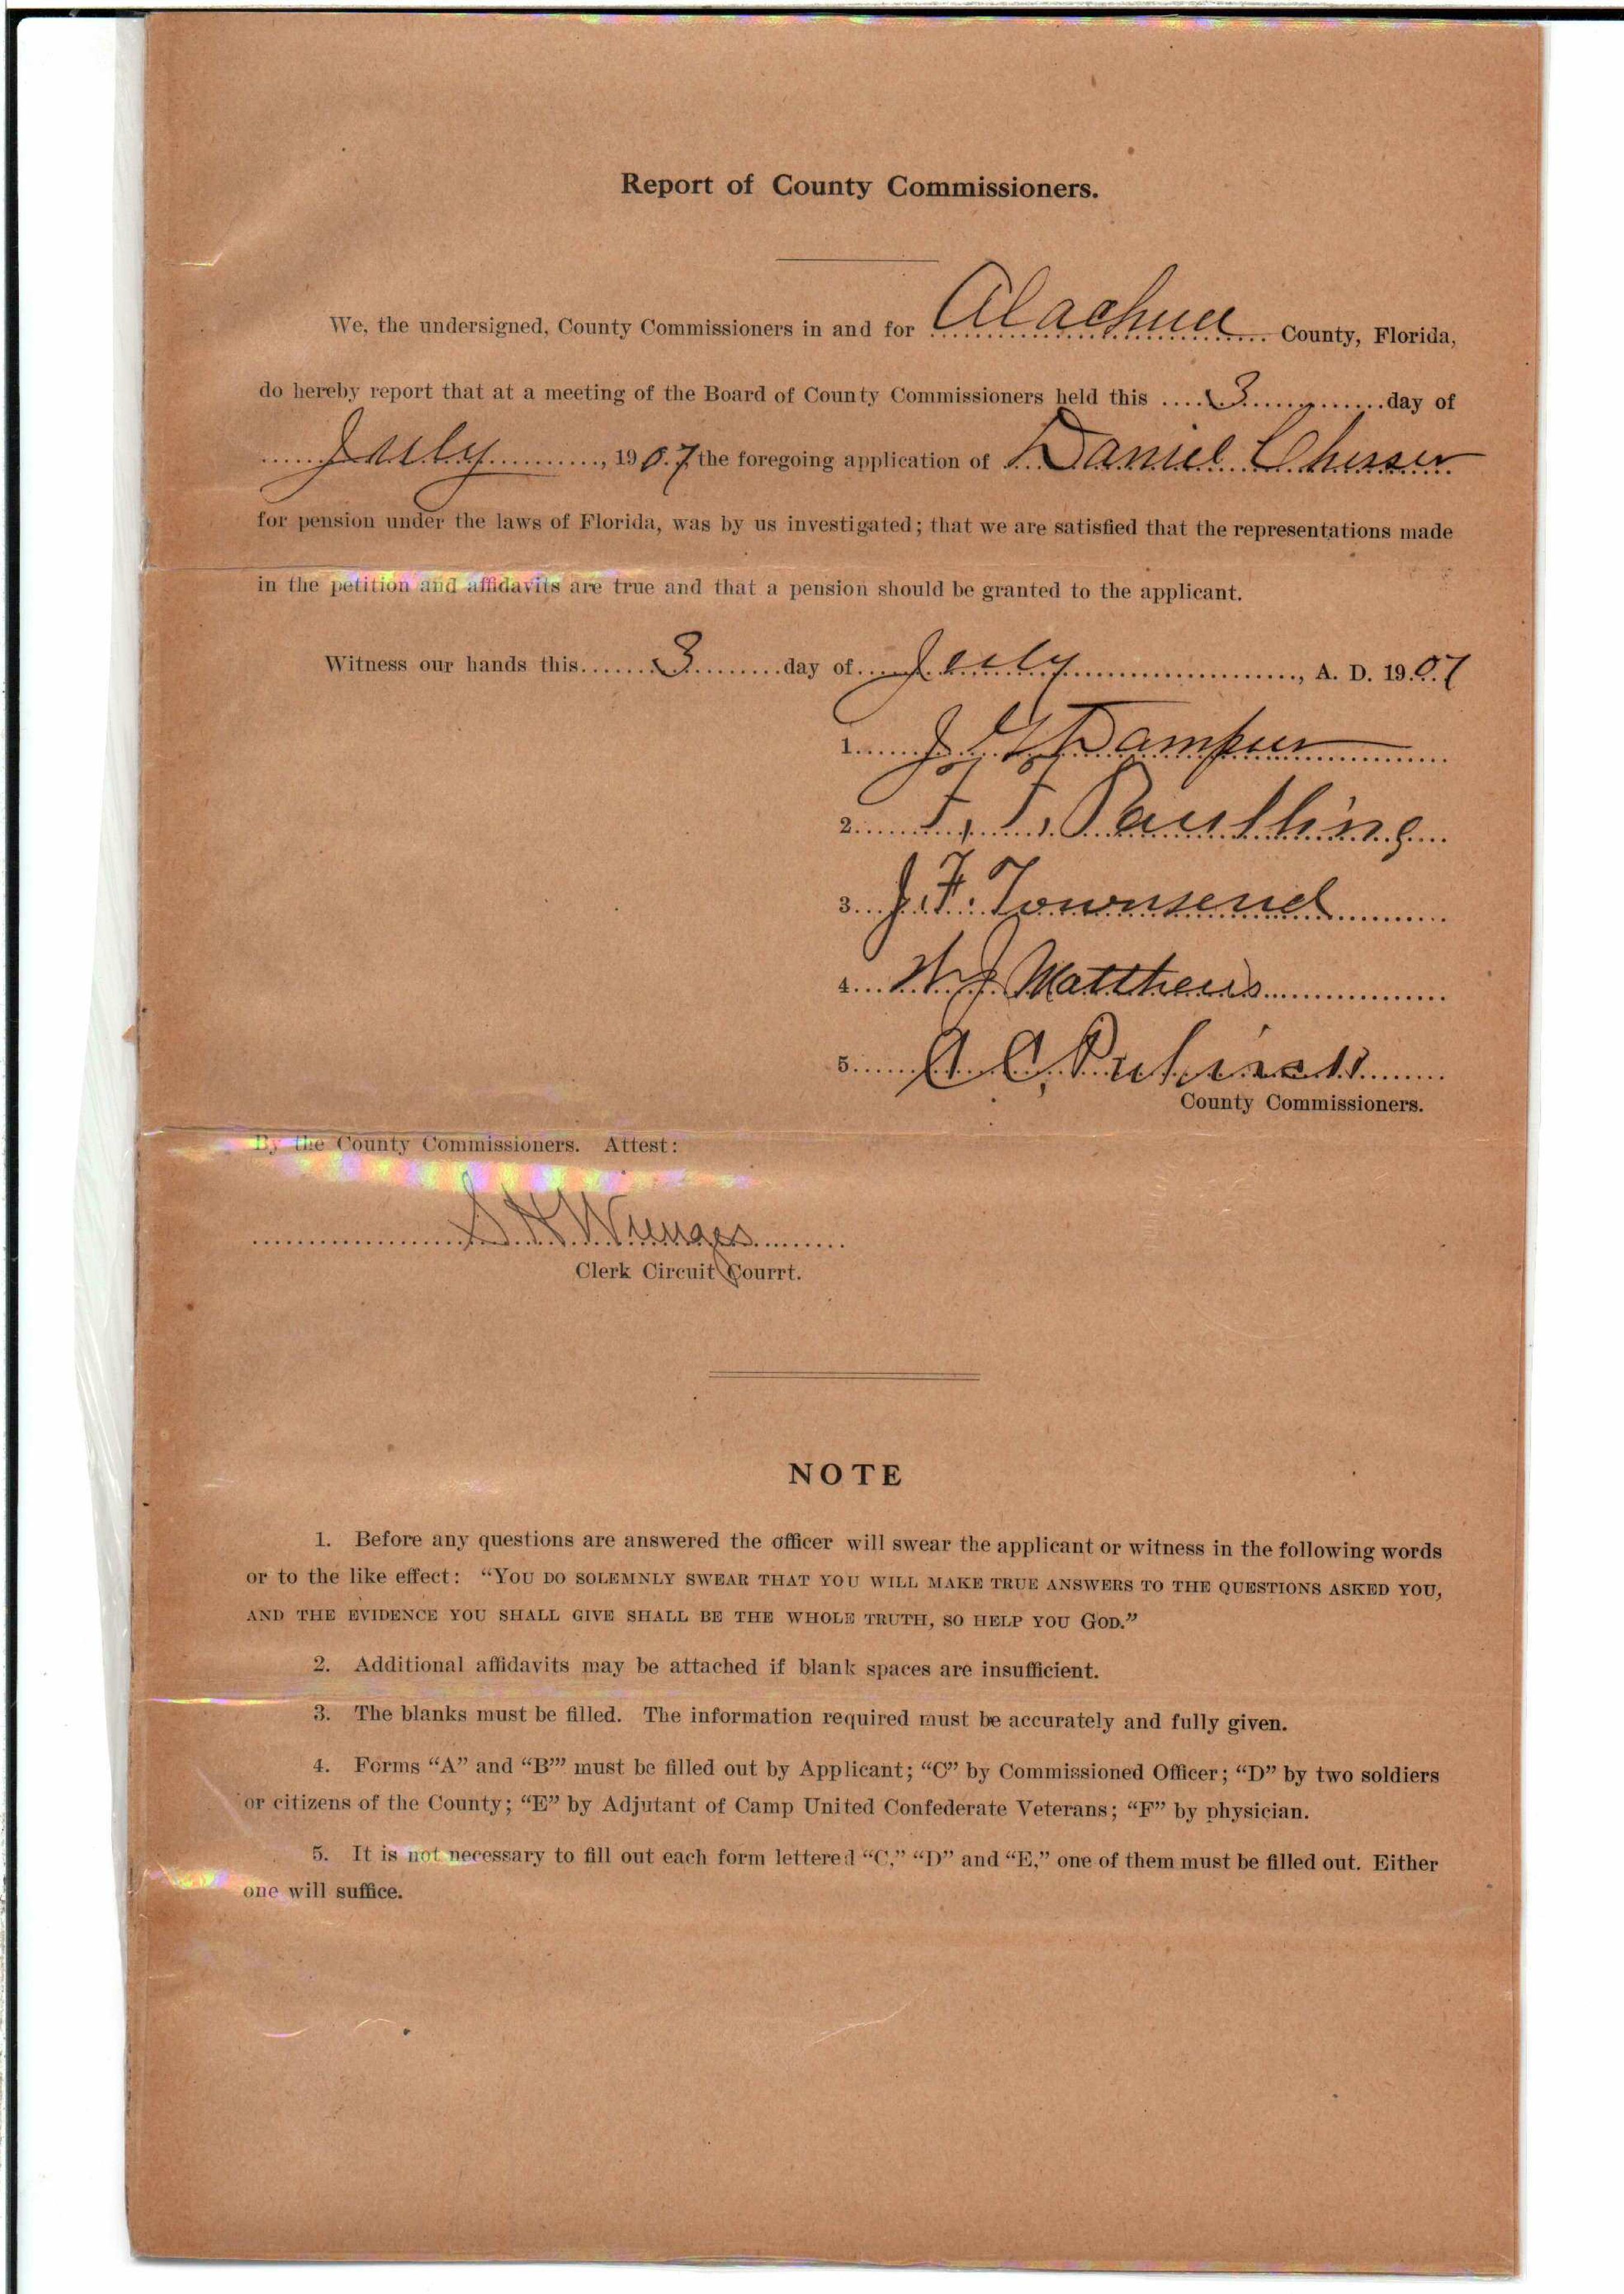 Report of County Commissioners.
We, the undersigned, County Commissioners in and for Alachua County, Florida,
do hereby report that at a meeting of the Board of County Commissioners held this 3 day of
July, 1907 the foregoing application of Daniel Chesser
for pension under the laws of Florida, was by us investigated; that we are satisfied that the representations made
in the petition and affidavits are true and that a pension should be granted to the applicant.
Witness our hands this 3 day of July, A. D. 1907
1. J. G. Dampier
2.
3. J. F. Townsend
4. Matthews
5. A. C.
County Commissioners.
By the County Commissioners. Attest:
S H Wienges
Clerk Circuit Courrt.
NOTE
1. Before any questions are answered the officer will swear the applicant or witness in the following words
or to the like effect: "YOU DO SOLEMNLY SWEAR THAT YOU WILL MAKE TRUE ANSWERS TO THE QUESTIONS ASKED YOU,
AND THE EVIDENCE YOU SHALL GIVE SHALL BE THE WHOLE TRUTH, SO HELP YOU GOD."
2. Additional affidavits may be attached if blank spaces are insufficient.
3. The blanks must be filled. The information required must be accurately and fully given.
4. Forms "A" and "B'" must be filled out by Applicant; "C" by Commissioned Officer; "D" by two soldiers
or citizens of the County; "E" by Adjutant of Camp United Confederate Veterans; "F" by physician.
5. It is not necessary to fill out each form lettered "C," "D" and "E," one of them must be filled out. Either
one will suffice.